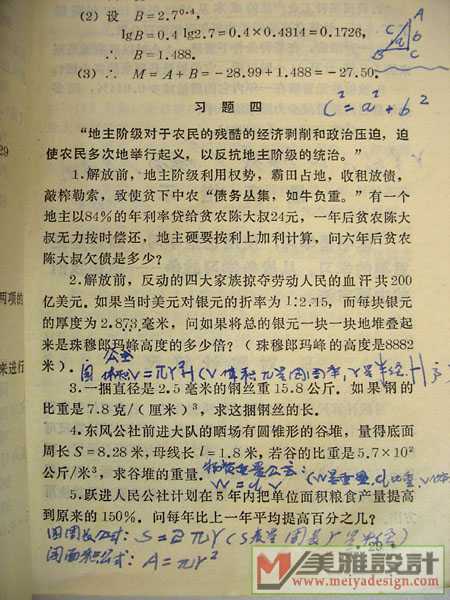 (2) 设 B=2.7⁰·⁴,
lgB=0.4 lg2.7=0.4×0.4314=0.1726,
∴ B=1.488.
(3) ∴ M=A+B=-28.99+1.488=-27.50.
A
C
b
B
C
习题四
C²=a²+b²
“地主阶级对于农民的残酷的经济剥削和政治压迫，迫
使农民多次地举行起义，以反抗地主阶级的统治。”
1.解放前，地主阶级利用权势，霸田占地，收租放债，
敲榨勒索，致使贫下中农“债务丛集，如牛负重。”有一个
地主以84%的年利率贷给贫农陈大叔24元，一年后贫农陈大
叔无力按时偿还，地主硬要按利上加利计算，问六年后贫农
陈大叔欠债是多少？
2.解放前，反动的四大家族掠夺劳动人民的血汗共200
亿美元。如果当时美元对银元的折率为1:2.15，而每块银元
的厚度为2.873毫米，问如果将总的银元一块一块地堆叠起
来是珠穆郎玛峰高度的多少倍？（珠穆郎玛峰的高度是8882
米）．
公式
V=πr²H (V体积 π是圆周率, r是半径 H
3.一捆直径是2.5毫米的钢丝重15.8公斤．如果钢的
比重是7.8克/（厘米）³，求这捆钢丝的长．
4.东风公社前进大队的晒场有圆锥形的谷堆，量得底面
周长S=8.28米，母线长l=1.8米，若谷的比重是5.7×10²
公斤/米³，求谷堆的重量．
W=dV
5.跃进人民公社计划在5年内把单位面积粮食产量提高
到原来的150%．问每年比上一年平均提高百分之几？
S=2πr
圆面积公式: A=πr²
29
两项的
来进行
29
美雅设计
www.meiyadesign.com